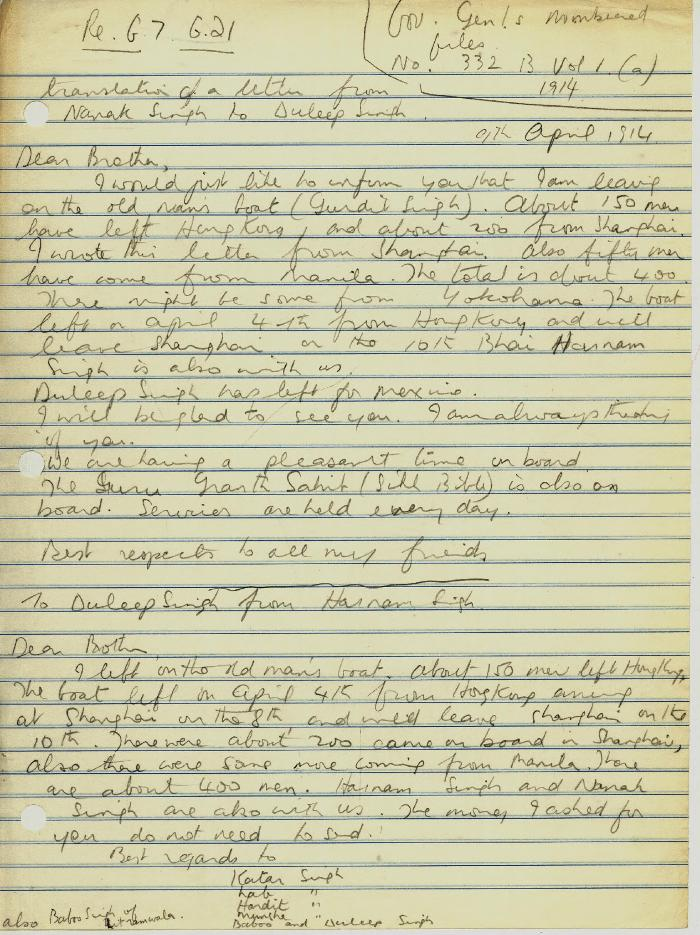 Re. G 7 G.21
Gov. Gen's numbered
files
No. 332 B Vol 1. (a)
1914
translation of a letter from
Nanak Singh to Duleep Singh.
9th April 1914
Dear Brother,
I would just like to inform you that I am leaving
on the old man's boat (Gurdit Singh). About 150 men
have left Hong Kong, and about 200 from Shanghai.
I wrote this letter from Shanghai. Also fifty men
have come from Manila. The total is about 400.
There might be some from Yokohama. The boat
left on april 4th from Hong Kong and will
leave Shanghai on the 10th Bhai Harnam
Singh is also with us.
Duleep Singh has left for Mexico.
I will be glad to see you. I am always thinking
of you.
We are having a pleasant time on board.
The Guru Granth Sahib (Sikh Bible) is also on
board. Services are held every day.
Best respects to all my friends
To Duleep Singh from Harnam Singh.
Dear Brother
I left on the old man's boat. About 150 men left Hong Kong.
The boat left on April 4th from Hong Kong arriving
at Shanghai on the 8th and will leave Shanghai on the
10th. There were about 200 came on board in Shanghai,
also there were some more coming from Manila. There
are about 400 men. Harnam Singh and Nanak
Singh are also with us. The money I asked for
you do not need to send.
Best regards to
Katar Singh
Lab "
Hardit "
Munsha
Baboo and " Duleep Singh
also Baboo Singh of